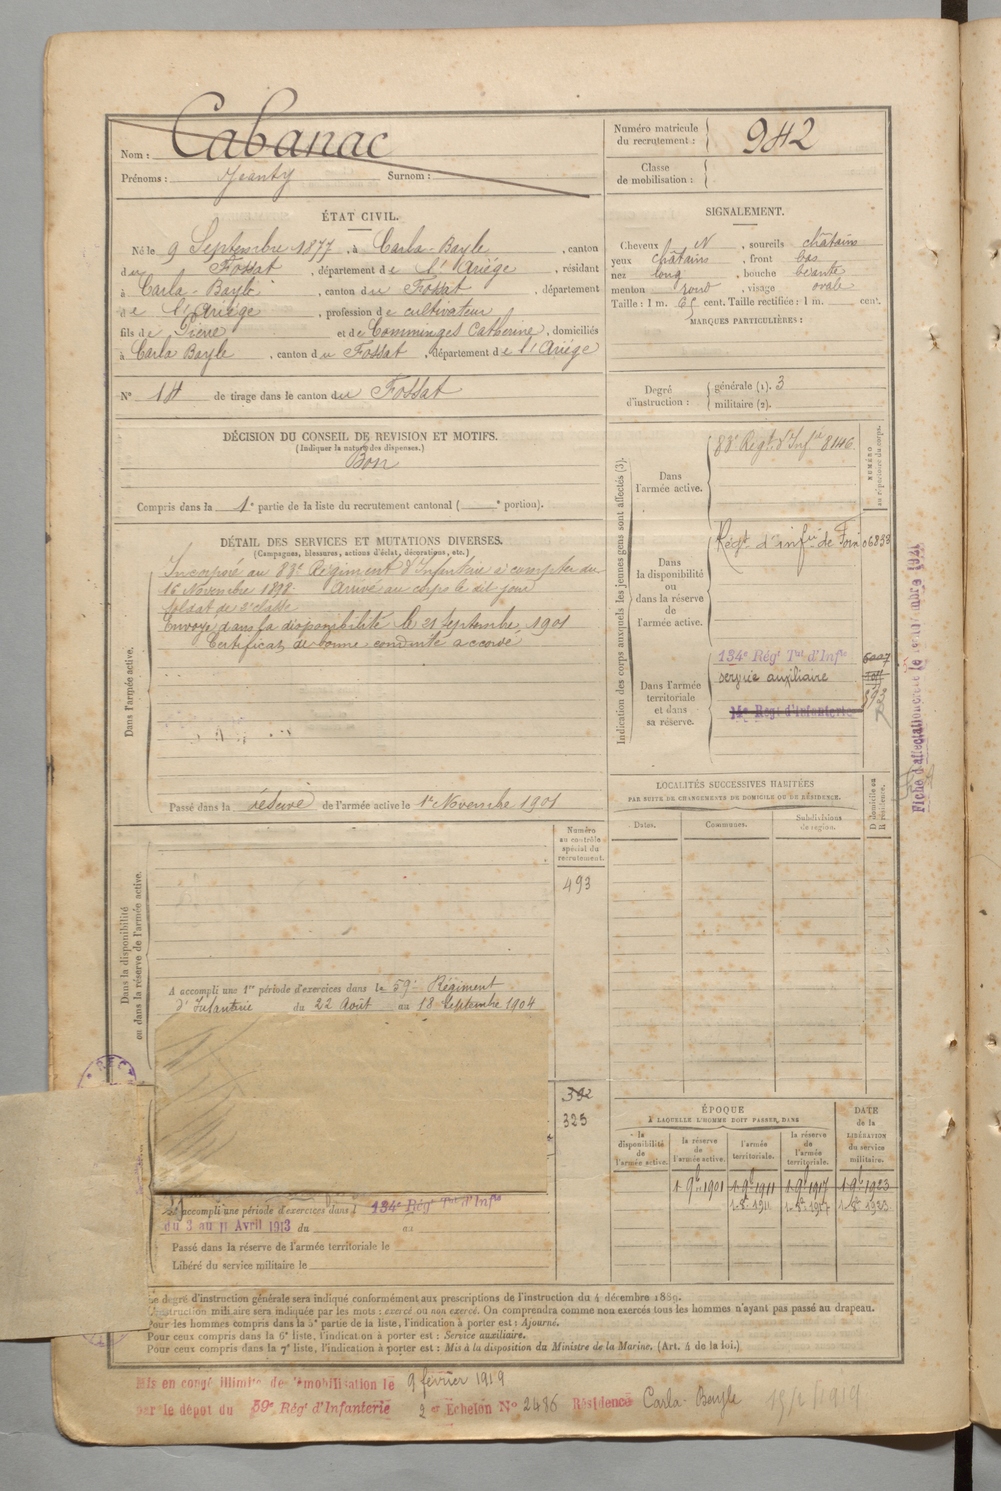 Nom : Cabanac
Prénoms : Jeanty Surnom :
Numéro matricule du recrutement : 942
Classe de mobilisation :
ÉTAT CIVIL.
Né le 9 Septembre 1877, à Carla-Bayle, canton
du Fossat, département de l'Ariége, résidant
à Carla-Bayle, canton du Fossat, département
de l'Ariège, profession de cultivateur
fils de Pierre et de Comminges Catherine, domiciliés
à Carla Bayle, canton du Fossat, département de l'Ariége
N° 14 de tirage dans le canton du Fossat
SIGNALEMENT.
Cheveux N, sourcils châtains
yeux châtains, front bas
nez long, bouche béante
menton rond, visage ovale
Taille : 1 m. 65 cent. Taille rectifiée : 1 m. cent.
MARQUES PARTICULIÈRES :
Degré d'instruction : générale (1). 3
militaire (2).
DÉCISION DU CONSEIL DE REVISION ET MOTIFS.
(Indiquer la nature des dispenses.)
Bon
Compris dans la 1e partie de la liste du recrutement cantonal ( e portion).
DÉTAIL DES SERVICES ET MUTATIONS DIVERSES.
(Campagnes, blessures, actions d'éclat, décorations, etc.)
Dans l'armée active.
Incorporé au 88e Régiment d'Infanterie à compter du
16 Novembre 1898. Arrivé au corps le dit jour
soldat de 2e classe
Envoyé dans la disponibilité le 21 Septembre 1901
Certificat de bonne conduite accordé
Passé dans la réserve de l'armée active le 1er Novembre 1901
Indication des corps auxquels les jeunes gens sont affectés (3).
NUMÉRO au répertoire du corps.
Dans l'armée active.
88e Régt d'Infie 8146
Dans la disponibilité ou dans la réserve de l'armée active.
Régt d'infie de Foix 06858
Dans l'armée territoriale et dans sa réserve.
134e Régt Tal d'Infie 6007
service auxiliaire
14e Regt d'Infanterie
LOCALITÉS SUCCESSIVES HABITÉES
PAR SUITE DE CHANGEMENTS DE DOMICILE OU DE RÉSIDENCE.
Dates. Communes. Subdivisions de région. D domicile ou R résidence.
Dans la disponibilité ou dans la réserve de l'armée active.
Numéro au contrôle spécial du recrutement.
493
A accompli une 1re période d'exercices dans le 59e Régiment
d'Infanterie du 22 Août au 18 Septembre 1904
392
325
A accompli une période d'exercices dans l 134e Régt Tal d'Infie
du 3 au 11 Avril 1913 du au
Passé dans la réserve de l'armée territoriale le
Libéré du service militaire le
ÉPOQUE
A LAQUELLE L'HOMME DOIT PASSER DANS
la disponibilité de l'armée active. la réserve de l'armée active. l'armée territoriale. la réserve de l'armée territoriale.
DATE de la LIBÉRATION du service militaire.
1. 9b 1901 1. 9b 1911 1. 9b 1917 1. 9b 1923
Le degré d'instruction générale sera indiqué conformément aux prescriptions de l'instruction du 4 décembre 1889.
L'instruction militaire sera indiquée par les mots : exercé ou non exercé. On comprendra comme non exercés tous les hommes n'ayant pas passé au drapeau.
Pour les hommes compris dans la 5e partie de la liste, l'indication à porter est : Ajourné.
Pour ceux compris dans la 6e liste, l'indication à porter est : Service auxiliaire.
Pour ceux compris dans la 7e liste, l'indication à porter est : Mis à la disposition du Ministre de la Marine. (Art. 4 de la loi.)
Mis en congé illimité de démobilisation le 9 février 1919
par le dépôt du 59e Régt d'Infanterie 2 er Echelon N° 2486 Résidence Carla-Bayle